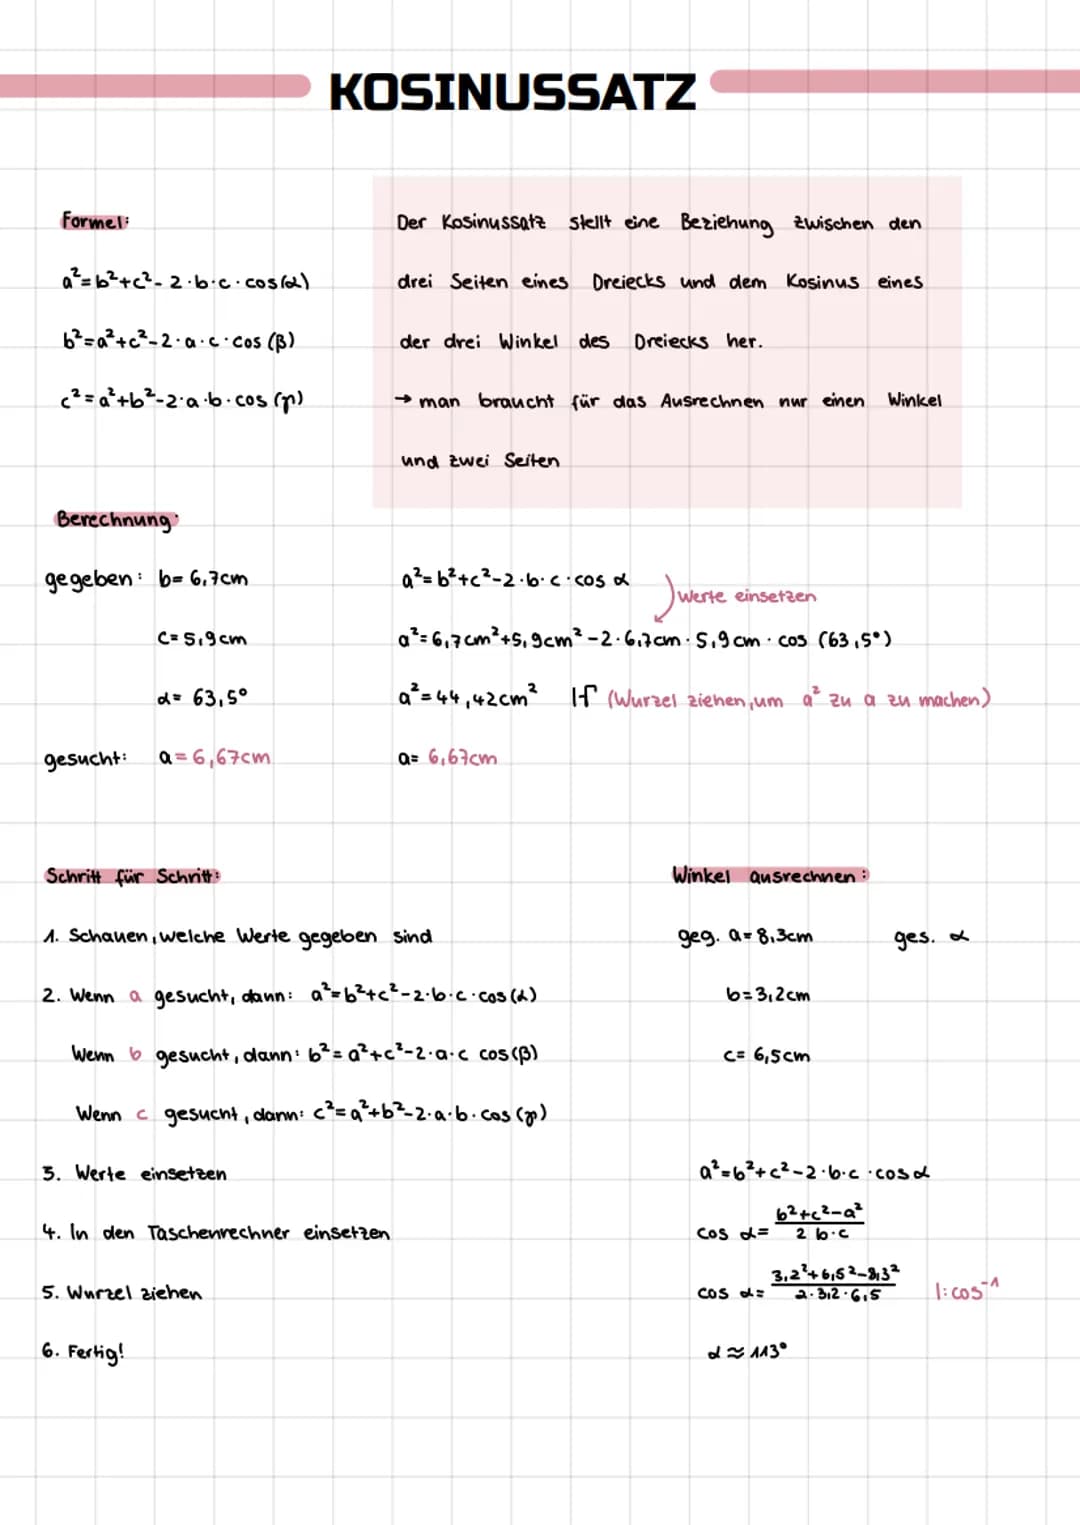 KOSINUSSATZ
Formel:
a²=b²+c²-2·b·c·cos(α)
b²=a²+c²-2·a·c·cos(β)
c²=a²+b²-2·a·b·cos(γ)
Der Kosinussatz stellt eine Beziehung zwischen den
drei Seiten eines Dreiecks und dem Kosinus eines
der drei Winkel des Dreiecks her.
→ man braucht für das Ausrechnen nur einen Winkel
und zwei Seiten
Berechnung:
gegeben: b= 6,7cm
c= 5,9cm
α= 63,5°
gesucht: a= 6,67cm
a²=b²+c²-2·b·c·cos α
Werte einsetzen
a²=6,7cm²+5,9cm²-2·6,7cm·5,9cm·cos (63,5°)
a²=44,42cm² |√ (Wurzel ziehen, um a² zu a zu machen)
a= 6,67cm
Schritt für Schritt:
1. Schauen, welche Werte gegeben sind
2. Wenn a gesucht, dann: a²=b²+c²-2·b·c·cos(α)
Wenn b gesucht, dann: b²=a²+c²-2·a·c cos(β)
Wenn c gesucht, dann: c²=a²+b²-2·a·b·cos(γ)
3. Werte einsetzen
4. In den Taschenrechner einsetzen
5. Wurzel ziehen
6. Fertig!
Winkel ausrechnen:
geg. a= 8,3cm ges. α
b=3,2cm
c= 6,5cm
a²=b²+c²-2·b·c·cosα
b²+c²-a²
cos α= 2 b·c
3,2²+6,5²-8,3²
cos α= 2·3,2·6,5 |:cos⁻¹
α≈113°